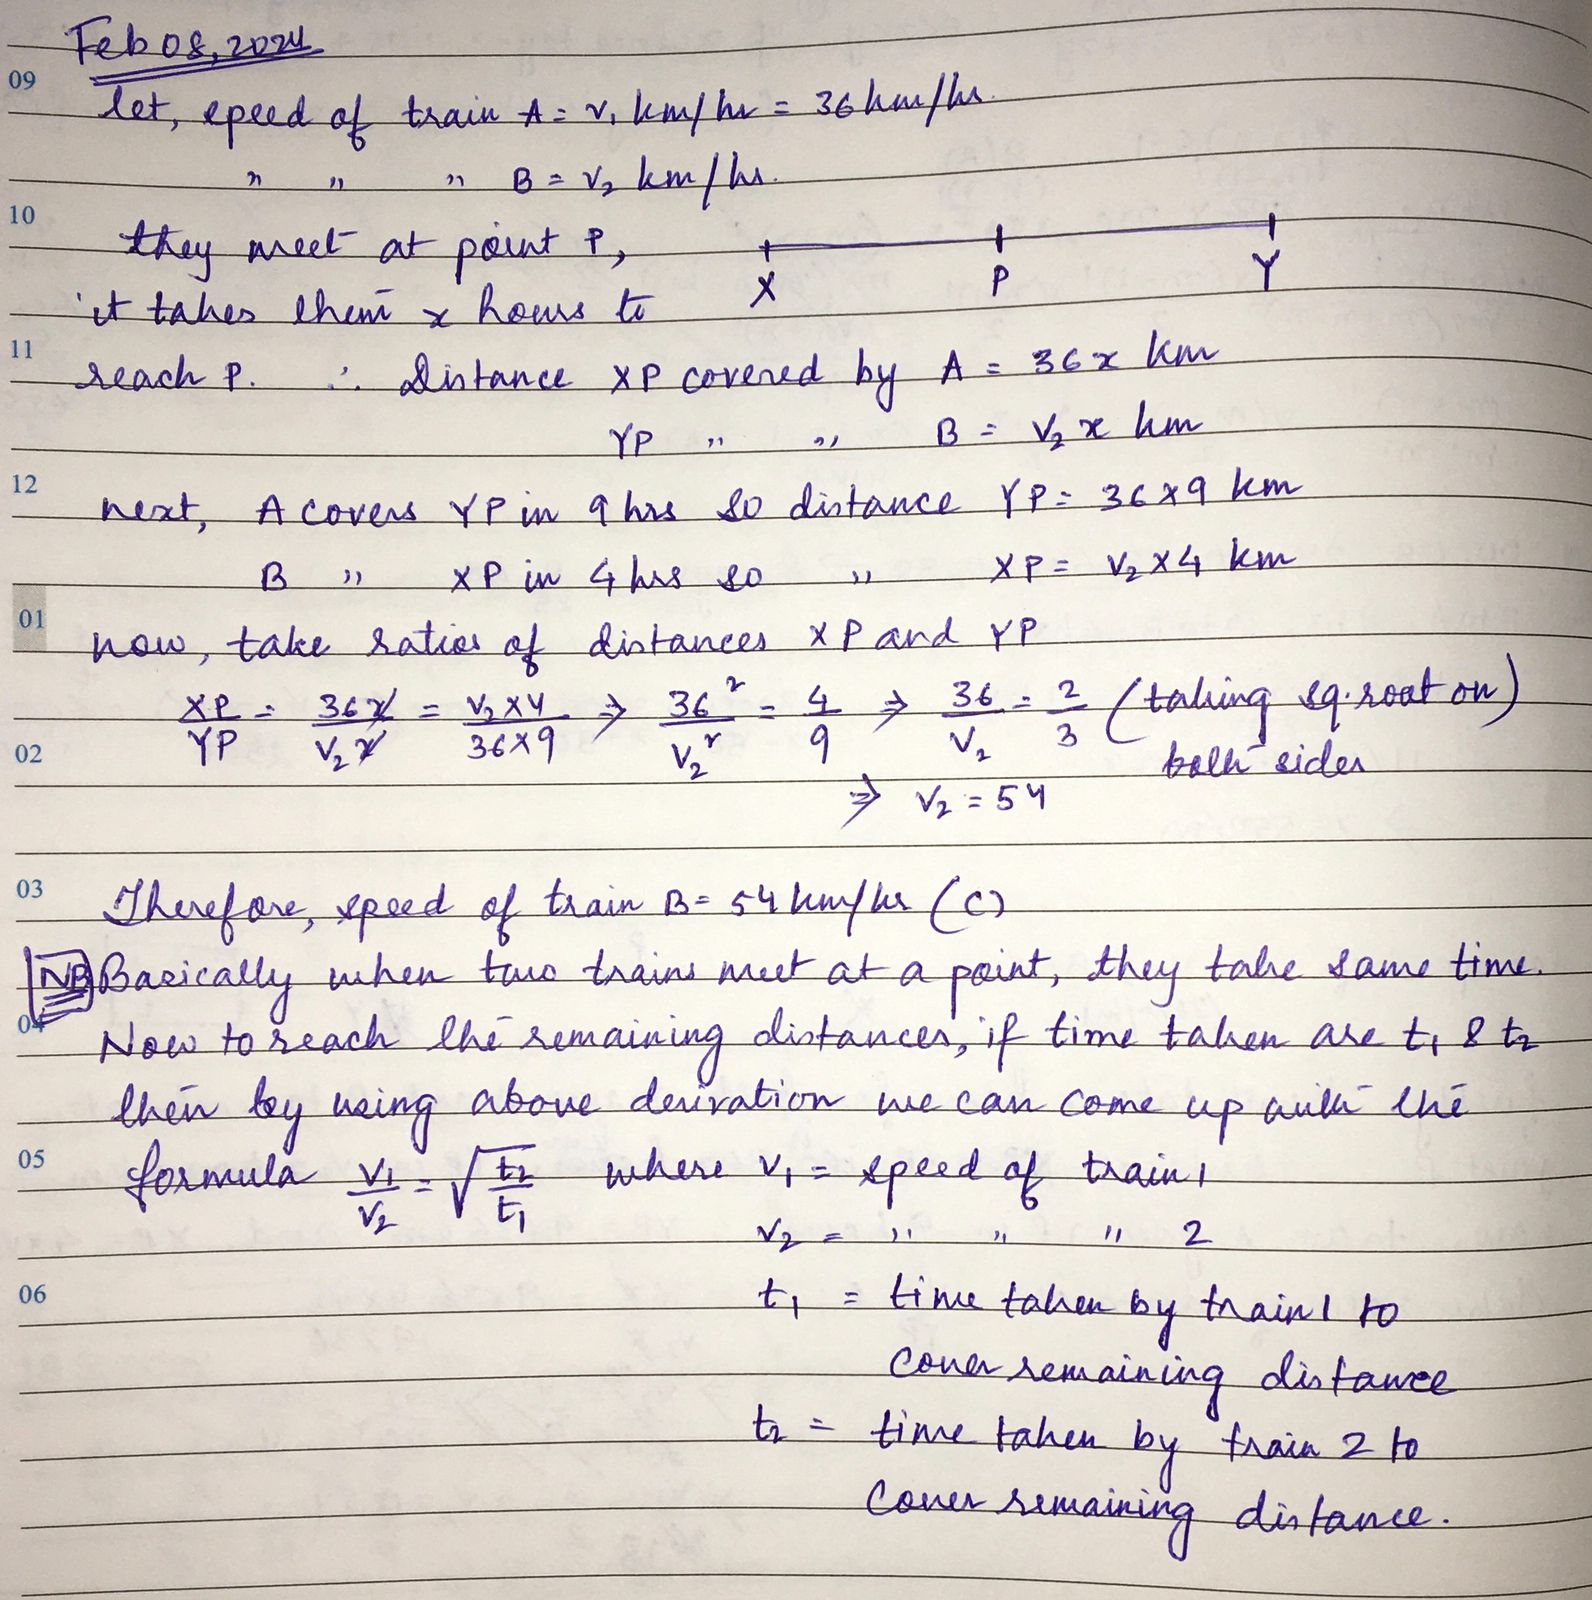 Feb 08, 2024
09
let, speed of train A = v₁ km/hr = 36 km/hr.
" " " B = v₂ km/hr.
10
they meet at point P,
X P Y
it takes them x hours to
11
reach P. ∴ Distance XP covered by A = 36x km
YP " " B = v₂ x km
12
next, A covers YP in 9 hrs so distance YP = 36×9 km
B " XP in 4 hrs so " XP = v₂×4 km
01
now, take ratios of distances XP and YP
XP/YP = 36x/v₂x = v₂×4/36×9 ⇒ 36²/v₂² = 4/9 ⇒ 36/v₂ = 2/3 (taking sq. root on)
02
both sides
⇒ v₂ = 54
03
Therefore, speed of train B = 54 km/hr (C)
NB Basically when two trains meet at a point, they take same time.
04
Now to reach the remaining distances, if time taken are t₁ & t₂
then by using above derivation we can come up with the
05
formula v₁/v₂ = √(t₂/t₁) where v₁ = speed of train 1
v₂ = " " " 2
06
t₁ = time taken by train 1 to
cover remaining distance
t₂ = time taken by train 2 to
cover remaining distance.